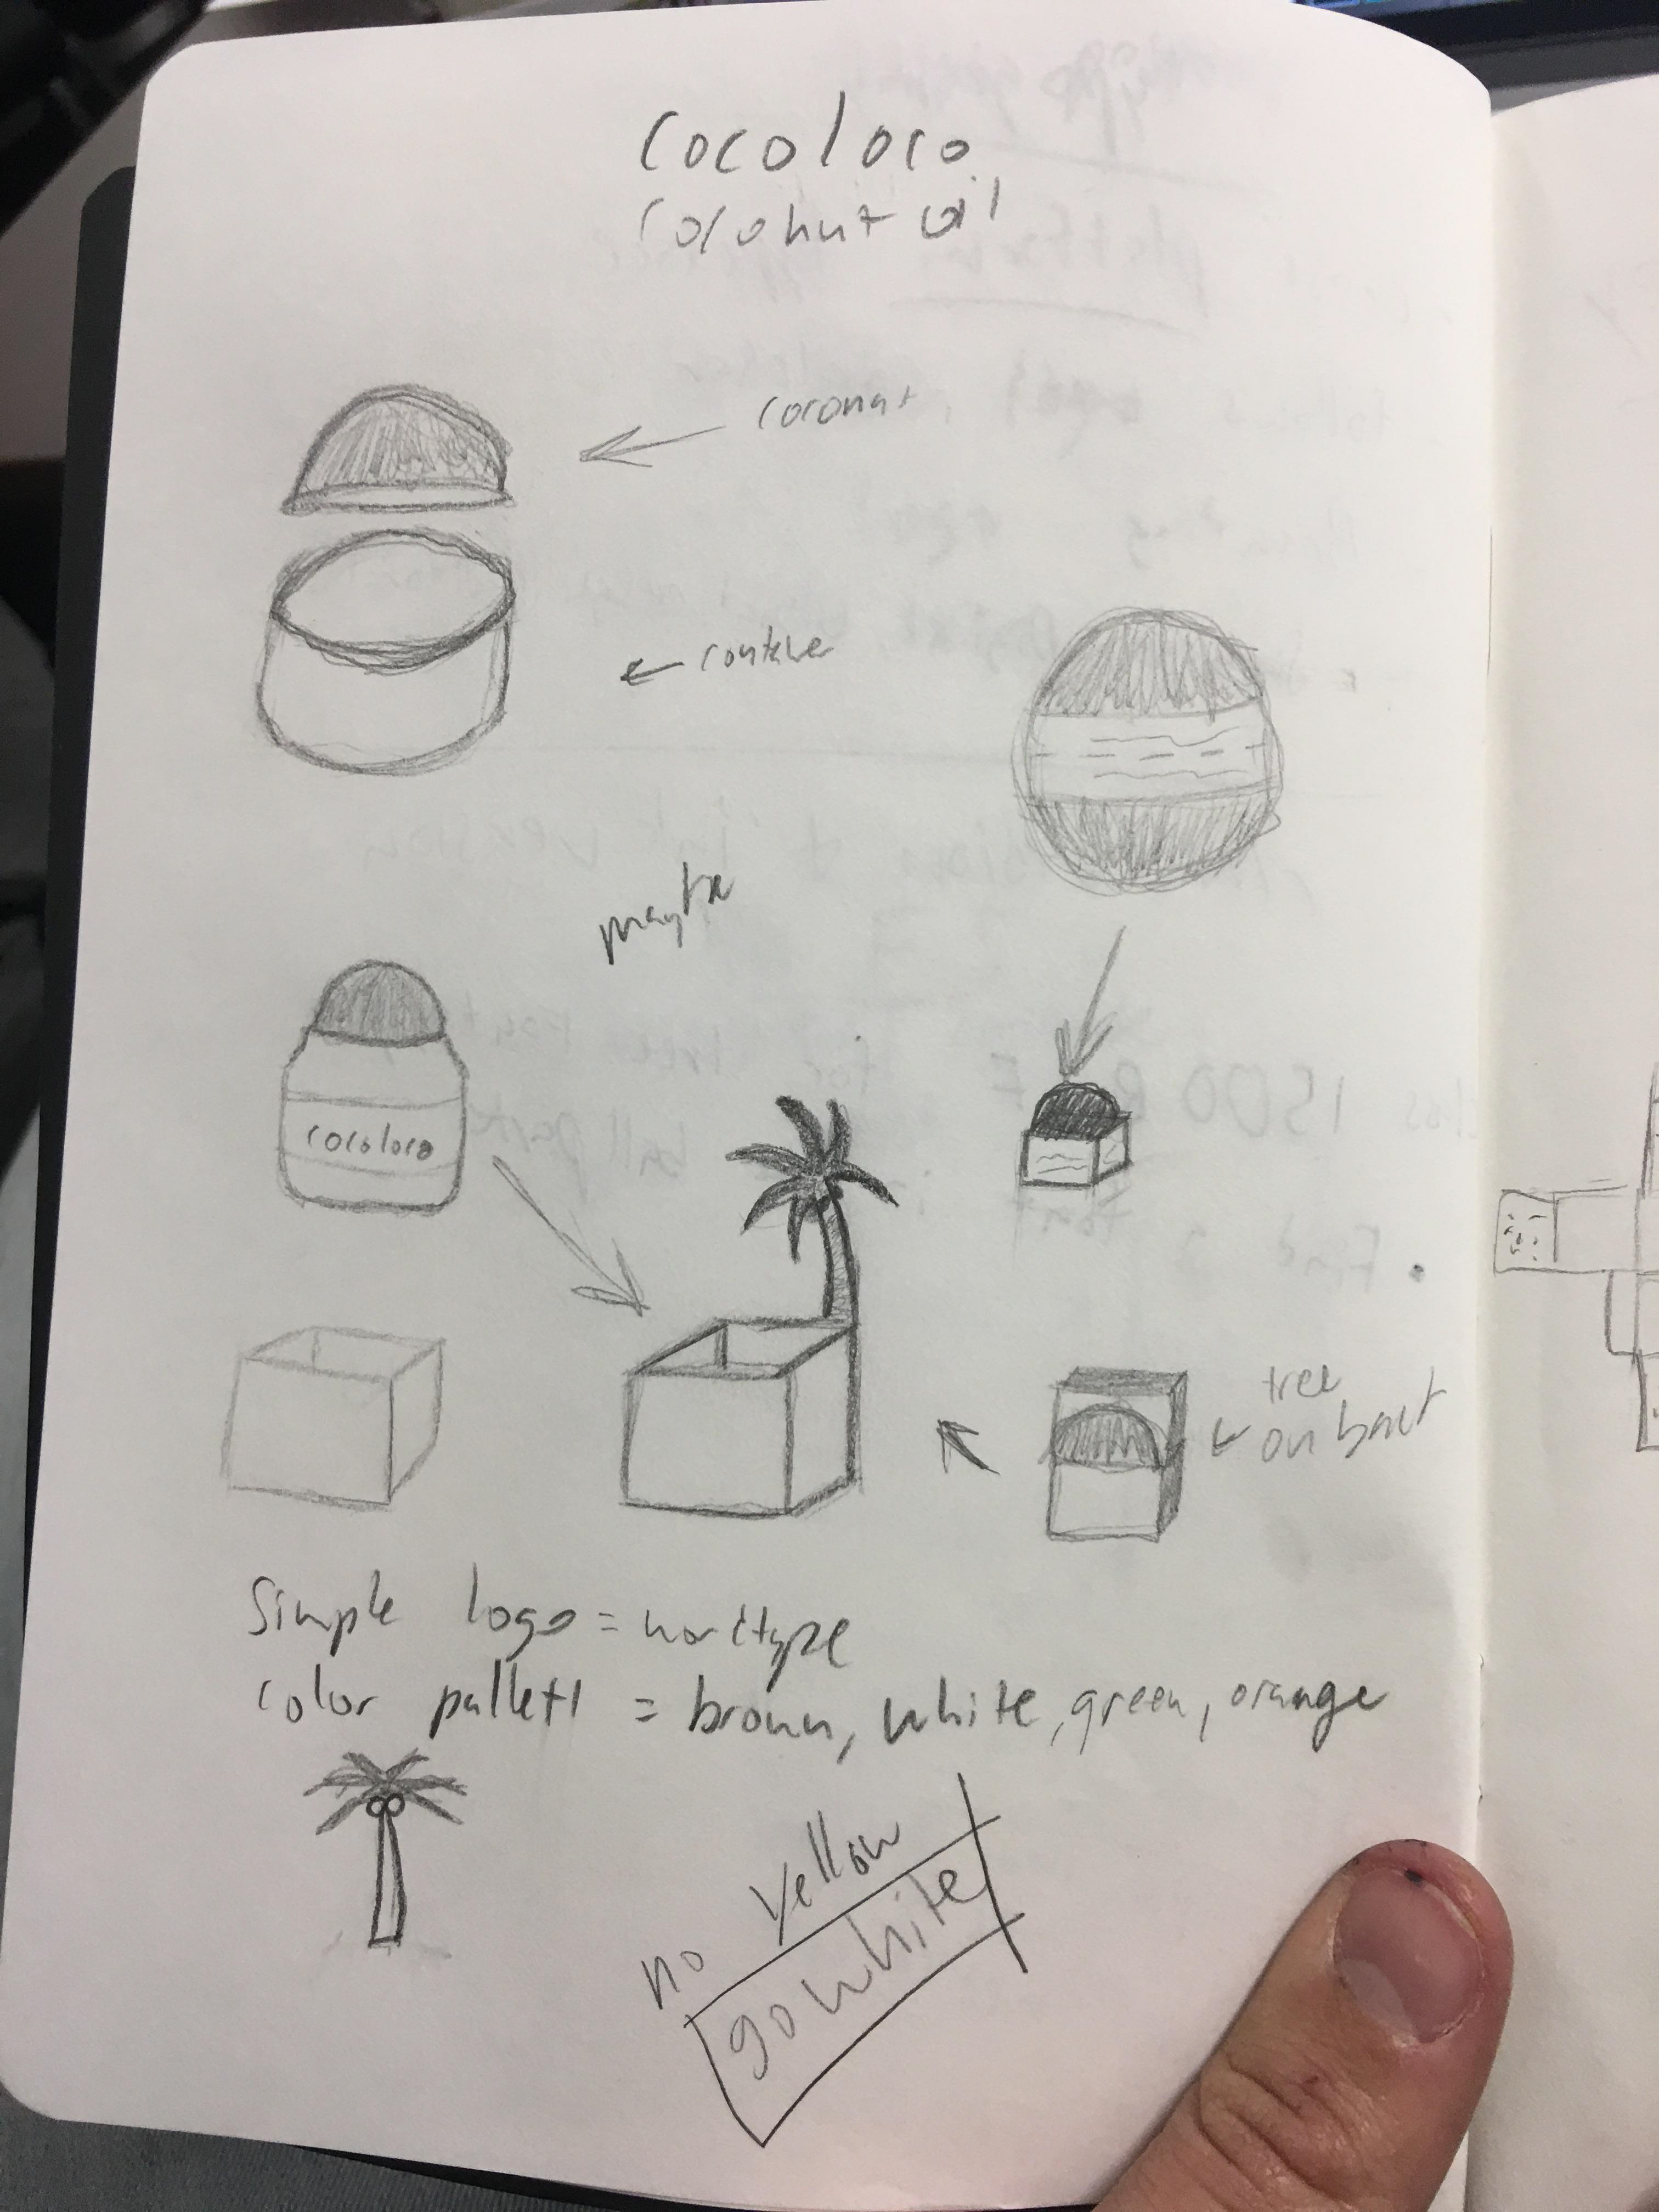 cocoloco
coconut oil
coconut
maybe
cocoloco
tree
on
Simple logo =
color = brown, white, green, orange
no yellow
go white